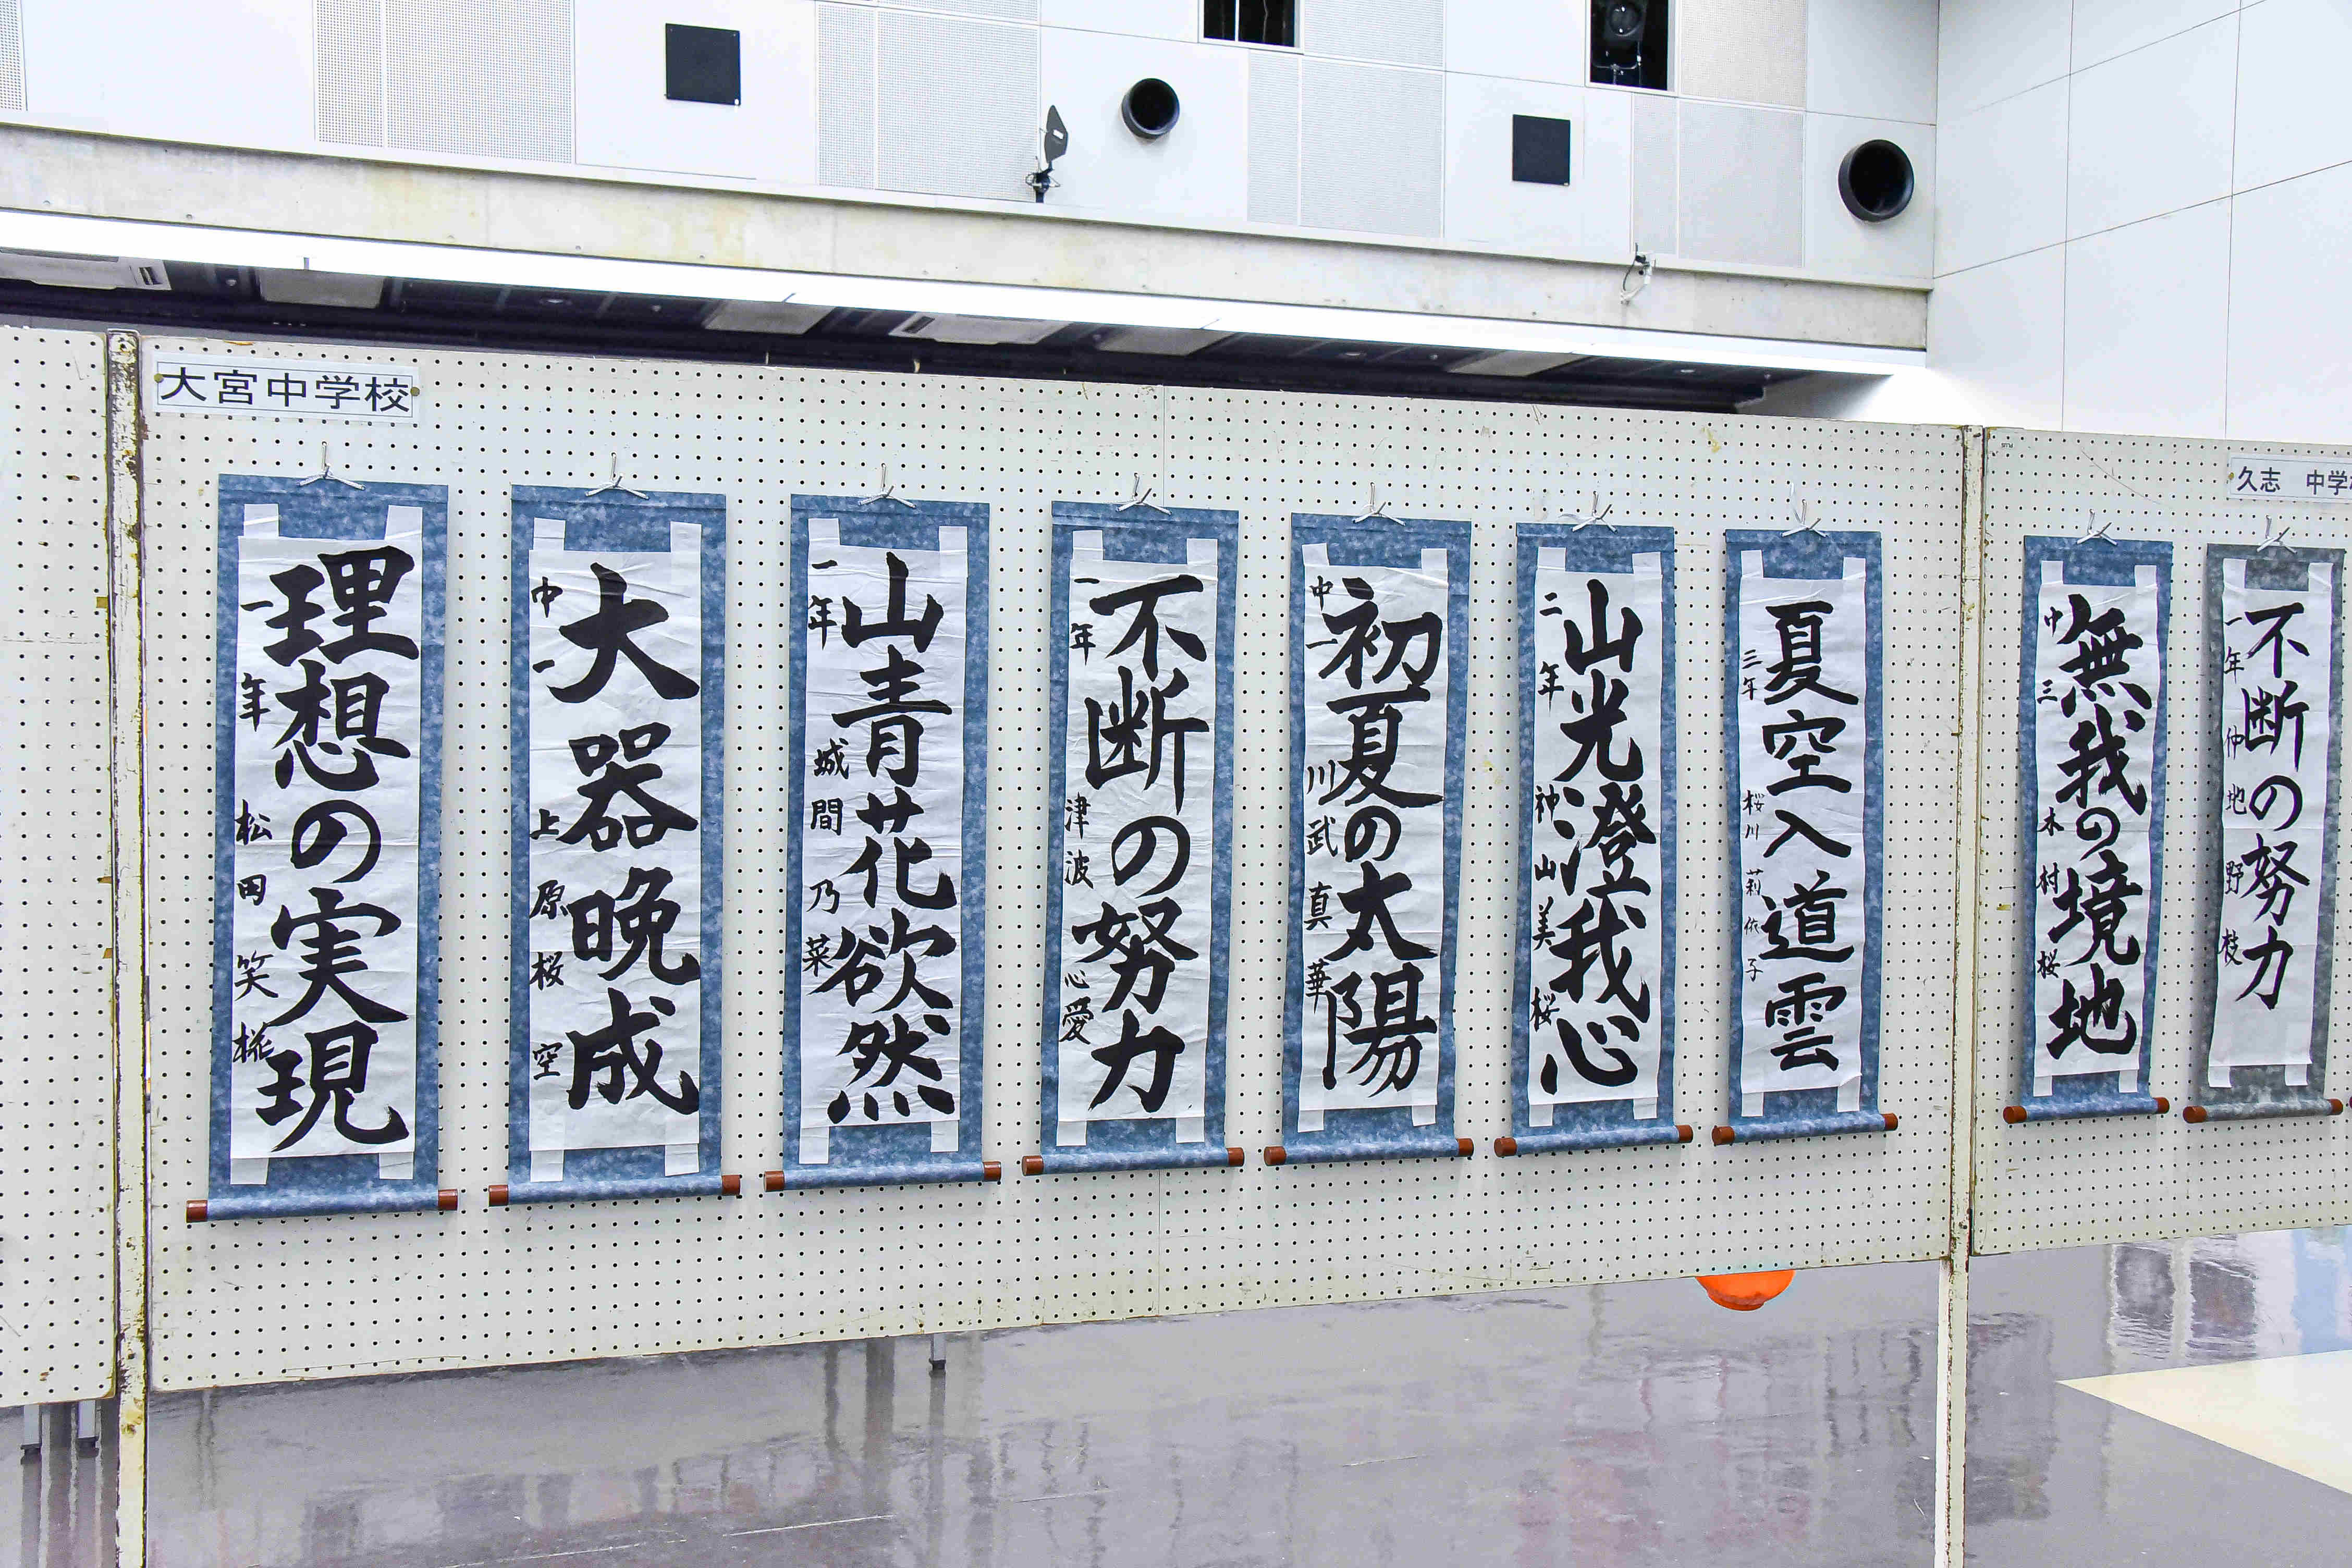 大宮中学校
理想の実現
一年 松田 笑椛
大器晩成
中一 上原 桜空
山青花欲然
一年 城間 乃菜
不断の努力
一年 津波 心愛
初夏の太陽
中一 川武 真華
山光澄我心
二年 神山 美桜
夏空入道雲
三年 桜川 莉依子
無我の境地
中三 木村 桜
久志 中学校
不断の努力
一年 仲地 野枝